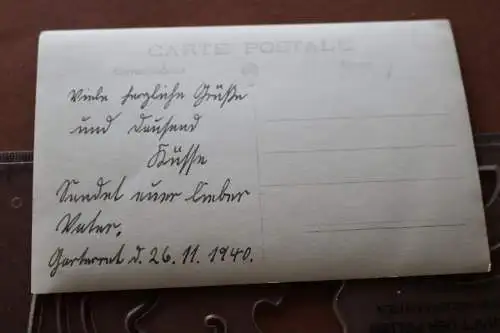 CARTE POSTALE
Correspondance
Viele herzliche Grüße
und Tausend
Küsse
Sendet euer lieber
Vater.
d. 26. 11. 1940.